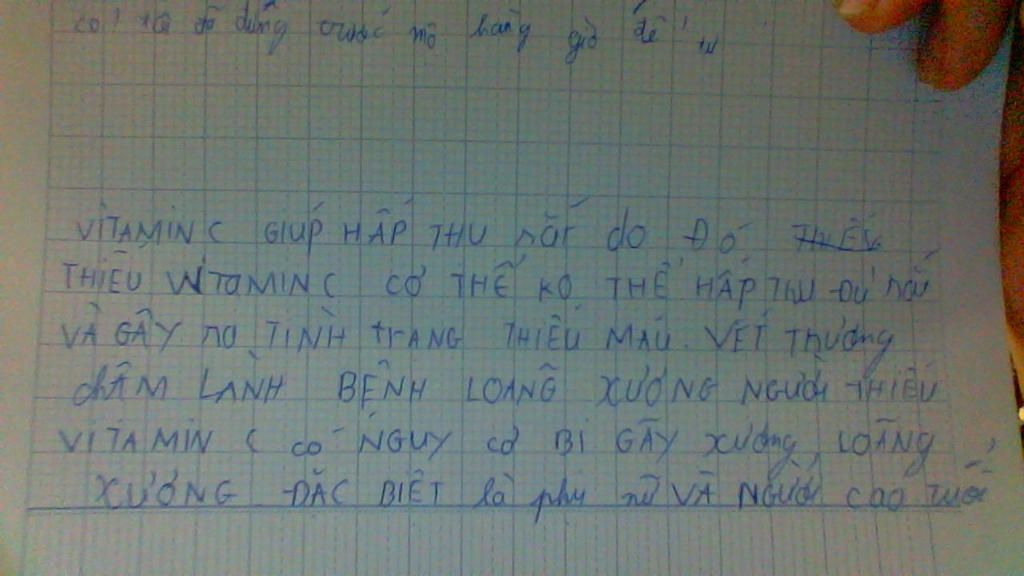 đồ dùng trước mộ hàng giờ để
VITAMIN C GIÚP HẤP THU SẮT do ĐÓ THIẾU
THIẾU VITAMIN C CƠ THỂ KO THỂ HẤP THU ĐỦ
VÀ GÂY RA TÌNH TRANG THIẾU MÁU. VẾT Thương
chẬM LÀNH BỆNH LOANG XƯƠNG NGƯỜI THIẾU
VITAMIN C có NGUY cơ BỊ GÃY xương, LOÃNG
XƯƠNG ĐẶC BIỆT là phụ nữ VÀ NGƯỜI CAO TUỔI